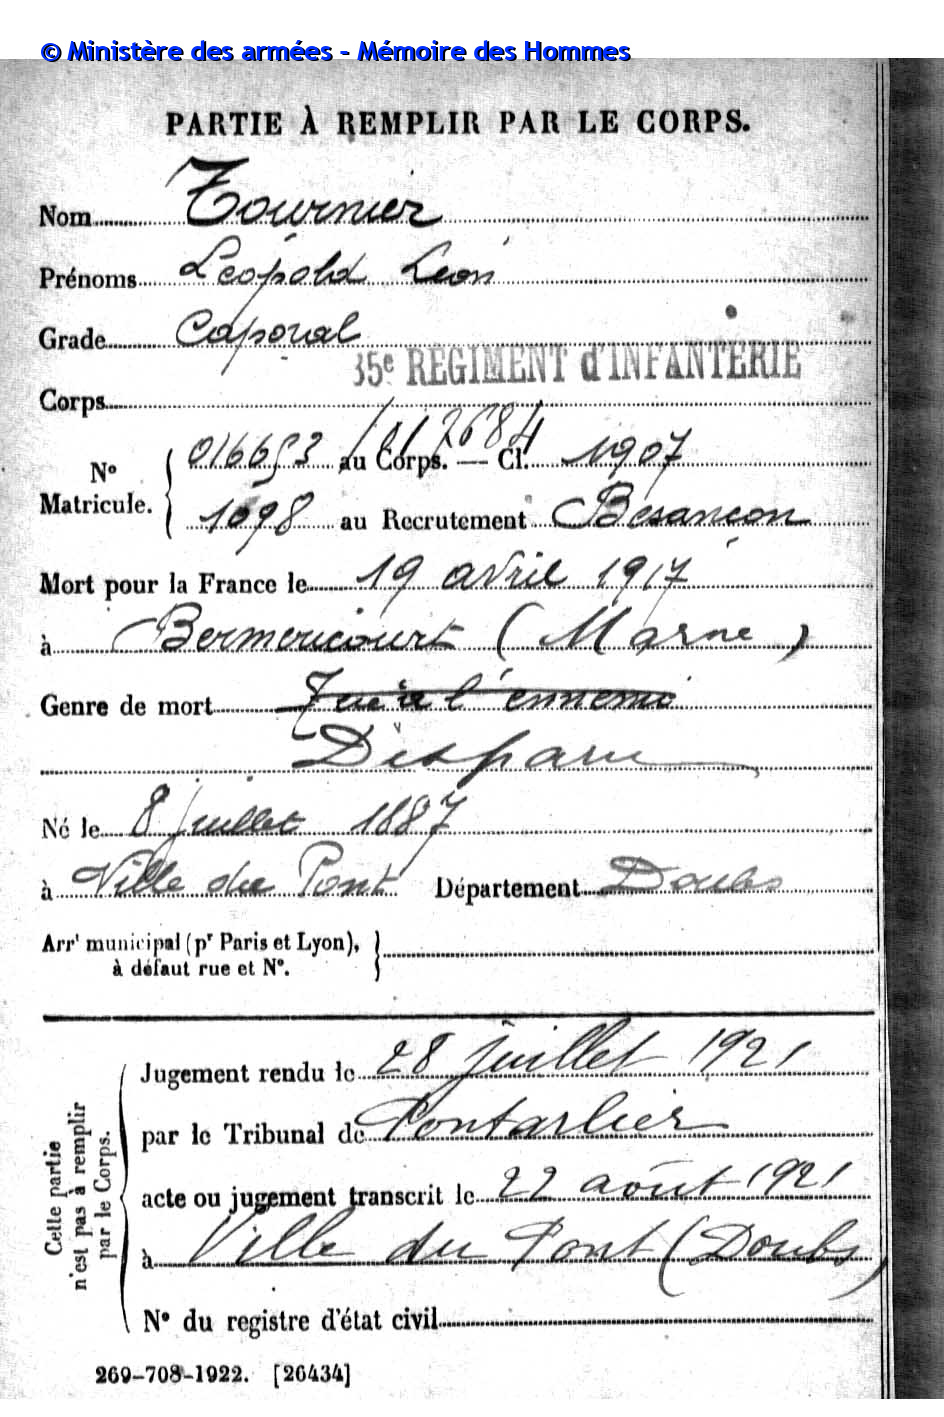 © Ministère des armées - Mémoire des Hommes
PARTIE À REMPLIR PAR LE CORPS.
Nom Tournier
Prénoms Léopold Léon
Grade Caporal
35e RÉGIMENT d'INFANTERIE
Corps
N° Matricule. 016653 /012684 au Corps. — Cl. 1907
1098 au Recrutement Besançon
Mort pour la France le 19 avril 1917
à Bermericourt (Marne)
Genre de mort Tué à l'ennemi
Disparu
Né le 8 juillet 1887
à Ville du Pont Département Doubs
Arrt municipal (pr Paris et Lyon),
à défaut rue et N°.
Cette partie
n'est pas à remplir
par le Corps.
Jugement rendu le 28 juillet 1921
par le Tribunal de Pontarlier
acte ou jugement transcrit le 22 août 1921
à Ville du Pont (Doubs)
N° du registre d'état civil
269-708-1922. [26434]